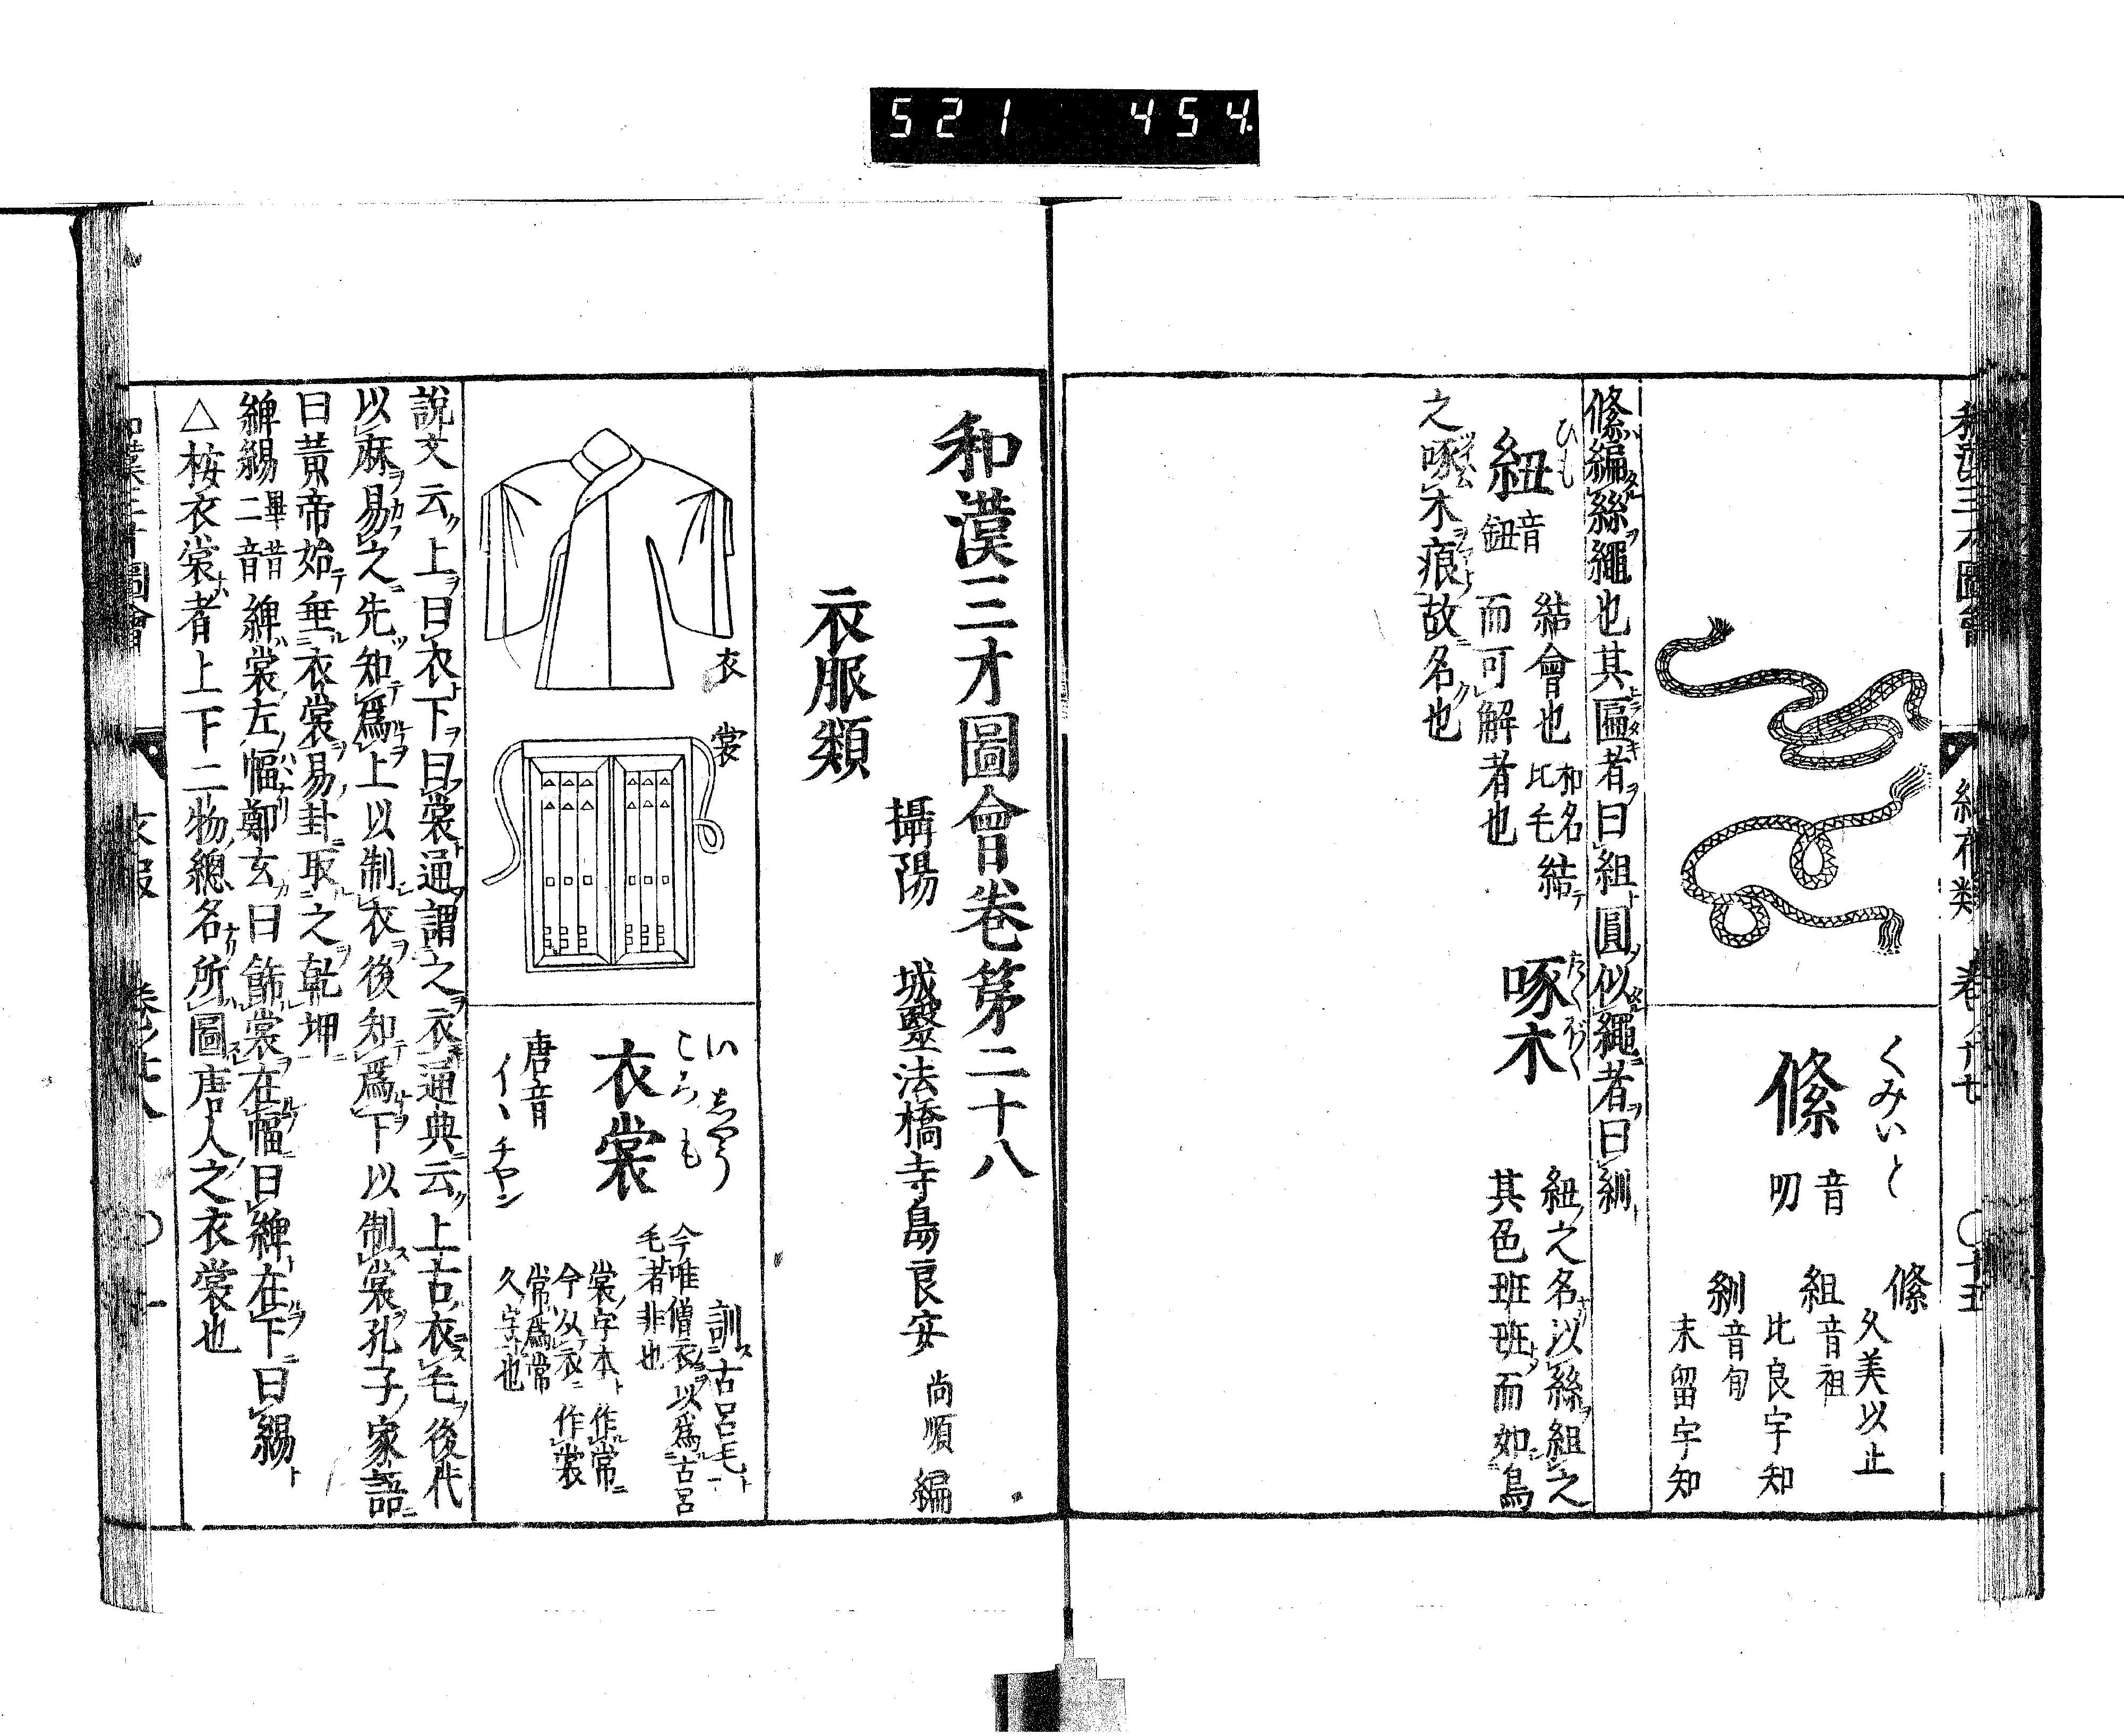 521 454.
くみいと
絛
音
叨
絛
久美以止
組音祖
比良宇知
紃音旬
末留宇知
絛編絲繩也其匾者曰組圓似繩者曰紃
ひも
紐
音
鈕
結會也和名比毛結
而可解者也
たくぼく
啄木
紐之名以絲組之
其色班班而如鳥
之啄木痕故名也
和漢三才圖會卷第二十八
攝陽 城醫法橋寺島良安 尚順 編
衣服類
衣
裳
いしやう
ころも
衣裳
唐音
イヽチヤン
訓古呂毛
今唯僧衣以爲古呂
毛者非也
裳字本作常
今以衣作裳
常爲常
久字也
說文云上曰衣下曰裳通謂之衣通典云上古衣毛後代
以麻易之先知爲上以制衣後知爲下以制裳孔子家語
曰黃帝始垂衣裳易卦取之乾坤
綼緆二音畢昔綼裳左幅鄭玄曰飾裳在幅曰綼在下曰緆
△桉衣裳者上下二物總名所圖唐人之衣裳也